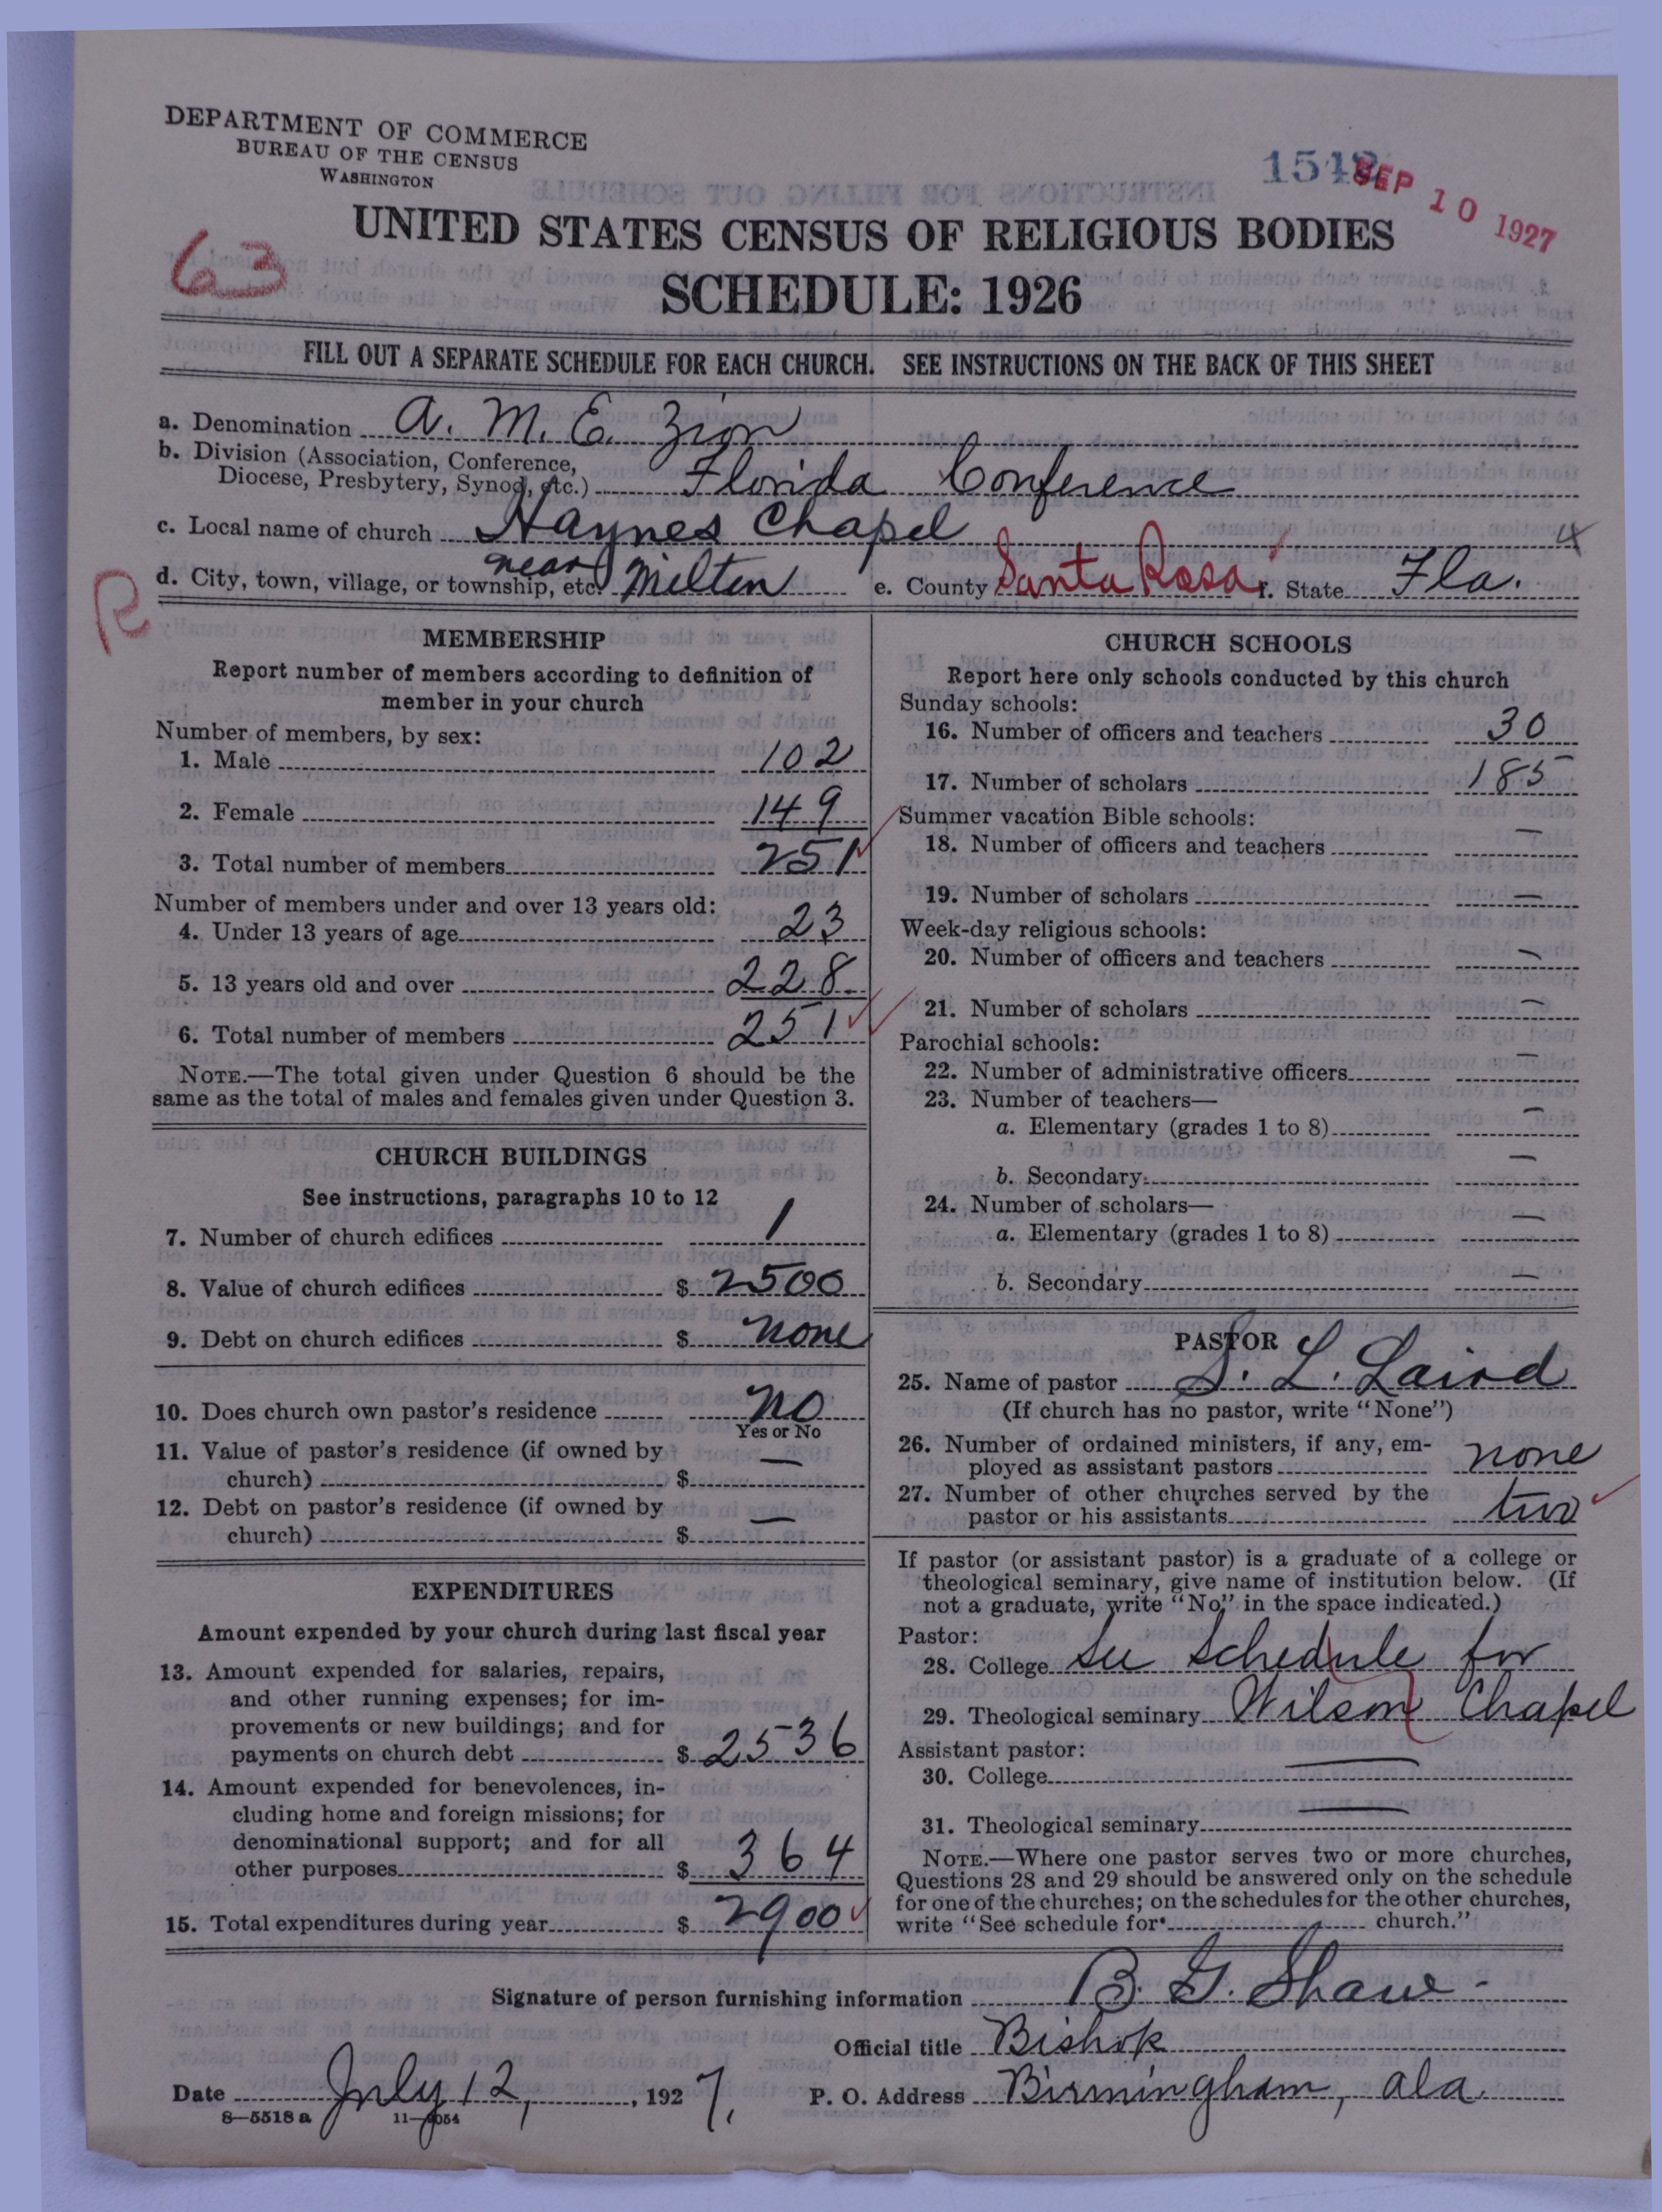 DEPARTMENT OF COMMERCE
BUREAU OF THE CENSUS
WASHINGTON
SEP 10 1927
63
UNITED STATES CENSUS OF RELIGIOUS BODIES
SCHEDULE: 1926
FILL OUT A SEPARATE SCHEDULE FOR EACH CHURCH. SEE INSTRUCTIONS ON THE BACK OF THIS SHEET
a. Denomination A. M. E. Zion
b. Division (Association, Conference,
Diocese, Presbytery, Synod, etc.) Florida Conference
c. Local name of church Haynes Chapel
4
d. City, town, village, or township, etc. near Milton e. County Santa Rosa f. State Fla.
R
MEMBERSHIP
Report number of members according to definition of
member in your church
Number of members, by sex:
1. Male 102
2. Female 149
3. Total number of members 251
Number of members under and over 13 years old:
4. Under 13 years of age 23
5. 13 years old and over 228
6. Total number of members 251
NOTE.—The total given under Question 6 should be the
same as the total of males and females given under Question 3.
CHURCH BUILDINGS
See instructions, paragraphs 10 to 12
7. Number of church edifices 1
8. Value of church edifices $ 2500
9. Debt on church edifices $ none
10. Does church own pastor's residence no
Yes or No
11. Value of pastor's residence (if owned by
church) $ —
12. Debt on pastor's residence (if owned by
church) $ —
EXPENDITURES
Amount expended by your church during last fiscal year
13. Amount expended for salaries, repairs,
and other running expenses; for im-
provements or new buildings; and for
payments on church debt $ 2536
14. Amount expended for benevolences, in-
cluding home and foreign missions; for
denominational support; and for all
other purposes $ 364
15. Total expenditures during year $ 2900
CHURCH SCHOOLS
Report here only schools conducted by this church
Sunday schools:
16. Number of officers and teachers 30
17. Number of scholars 185
Summer vacation Bible schools:
18. Number of officers and teachers —
19. Number of scholars —
Week-day religious schools:
20. Number of officers and teachers —
21. Number of scholars —
Parochial schools:
22. Number of administrative officers —
23. Number of teachers—
a. Elementary (grades 1 to 8) —
b. Secondary —
24. Number of scholars—
a. Elementary (grades 1 to 8) —
b. Secondary —
PASTOR
25. Name of pastor S. L. Laird
(If church has no pastor, write "None")
26. Number of ordained ministers, if any, em-
ployed as assistant pastors none
27. Number of other churches served by the
pastor or his assistants two
If pastor (or assistant pastor) is a graduate of a college or
theological seminary, give name of institution below. (If
not a graduate, write "No" in the space indicated.)
Pastor:
28. College See Schedule for
29. Theological seminary Wilson Chapel
Assistant pastor:
30. College —
31. Theological seminary —
NOTE.—Where one pastor serves two or more churches,
Questions 28 and 29 should be answered only on the schedule
for one of the churches; on the schedules for the other churches,
write "See schedule for church."
Signature of person furnishing information B. G. Shaw
Official title Bishop
Date July 12, 1927. P. O. Address Birmingham, Ala.
8—5518 a